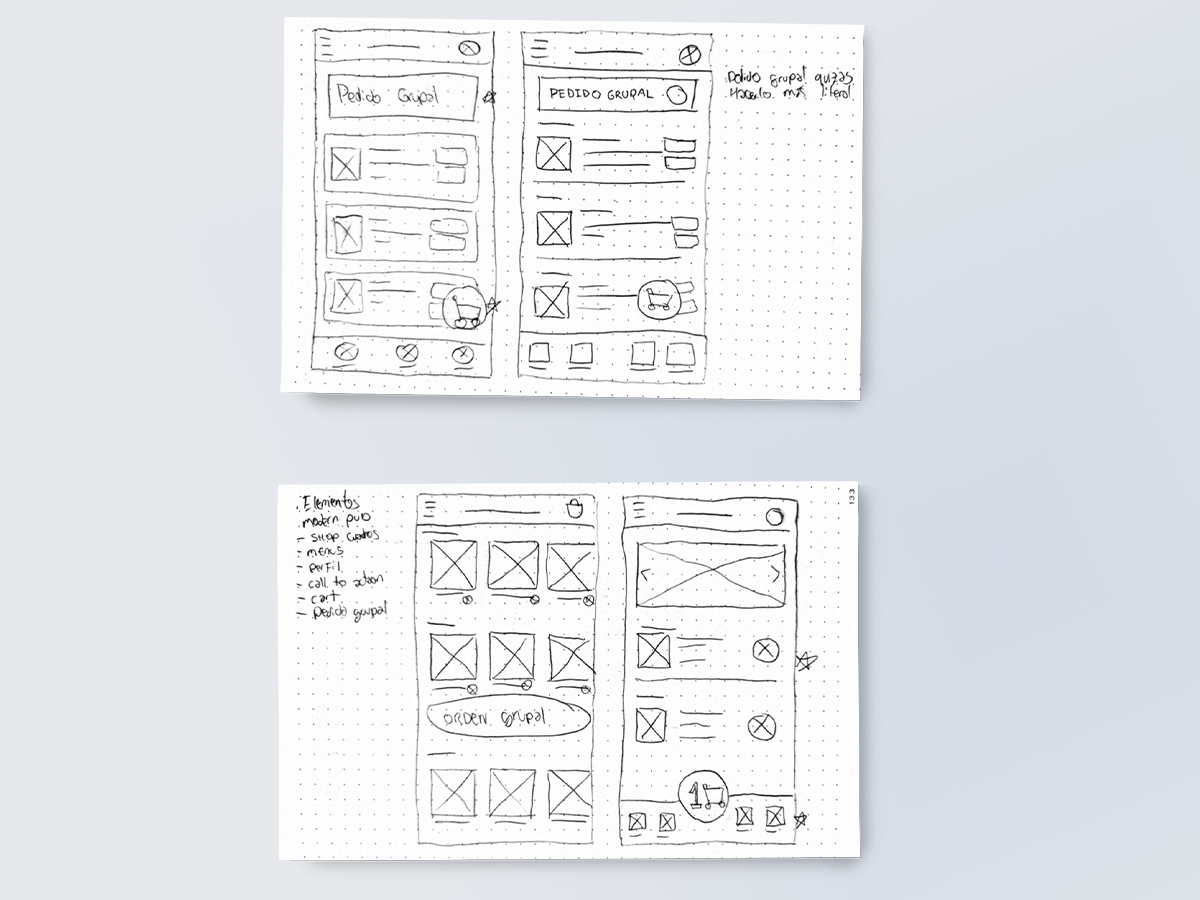 Pedido Grupal
PEDIDO GRUPAL
Pedido grupal quizas
Hacerlo más literal
Elementos
modern pub
- shop cuadros
- menus
- perfil
- call to action
- cart
- Pedido grupal
ORDEN Grupal
1
133